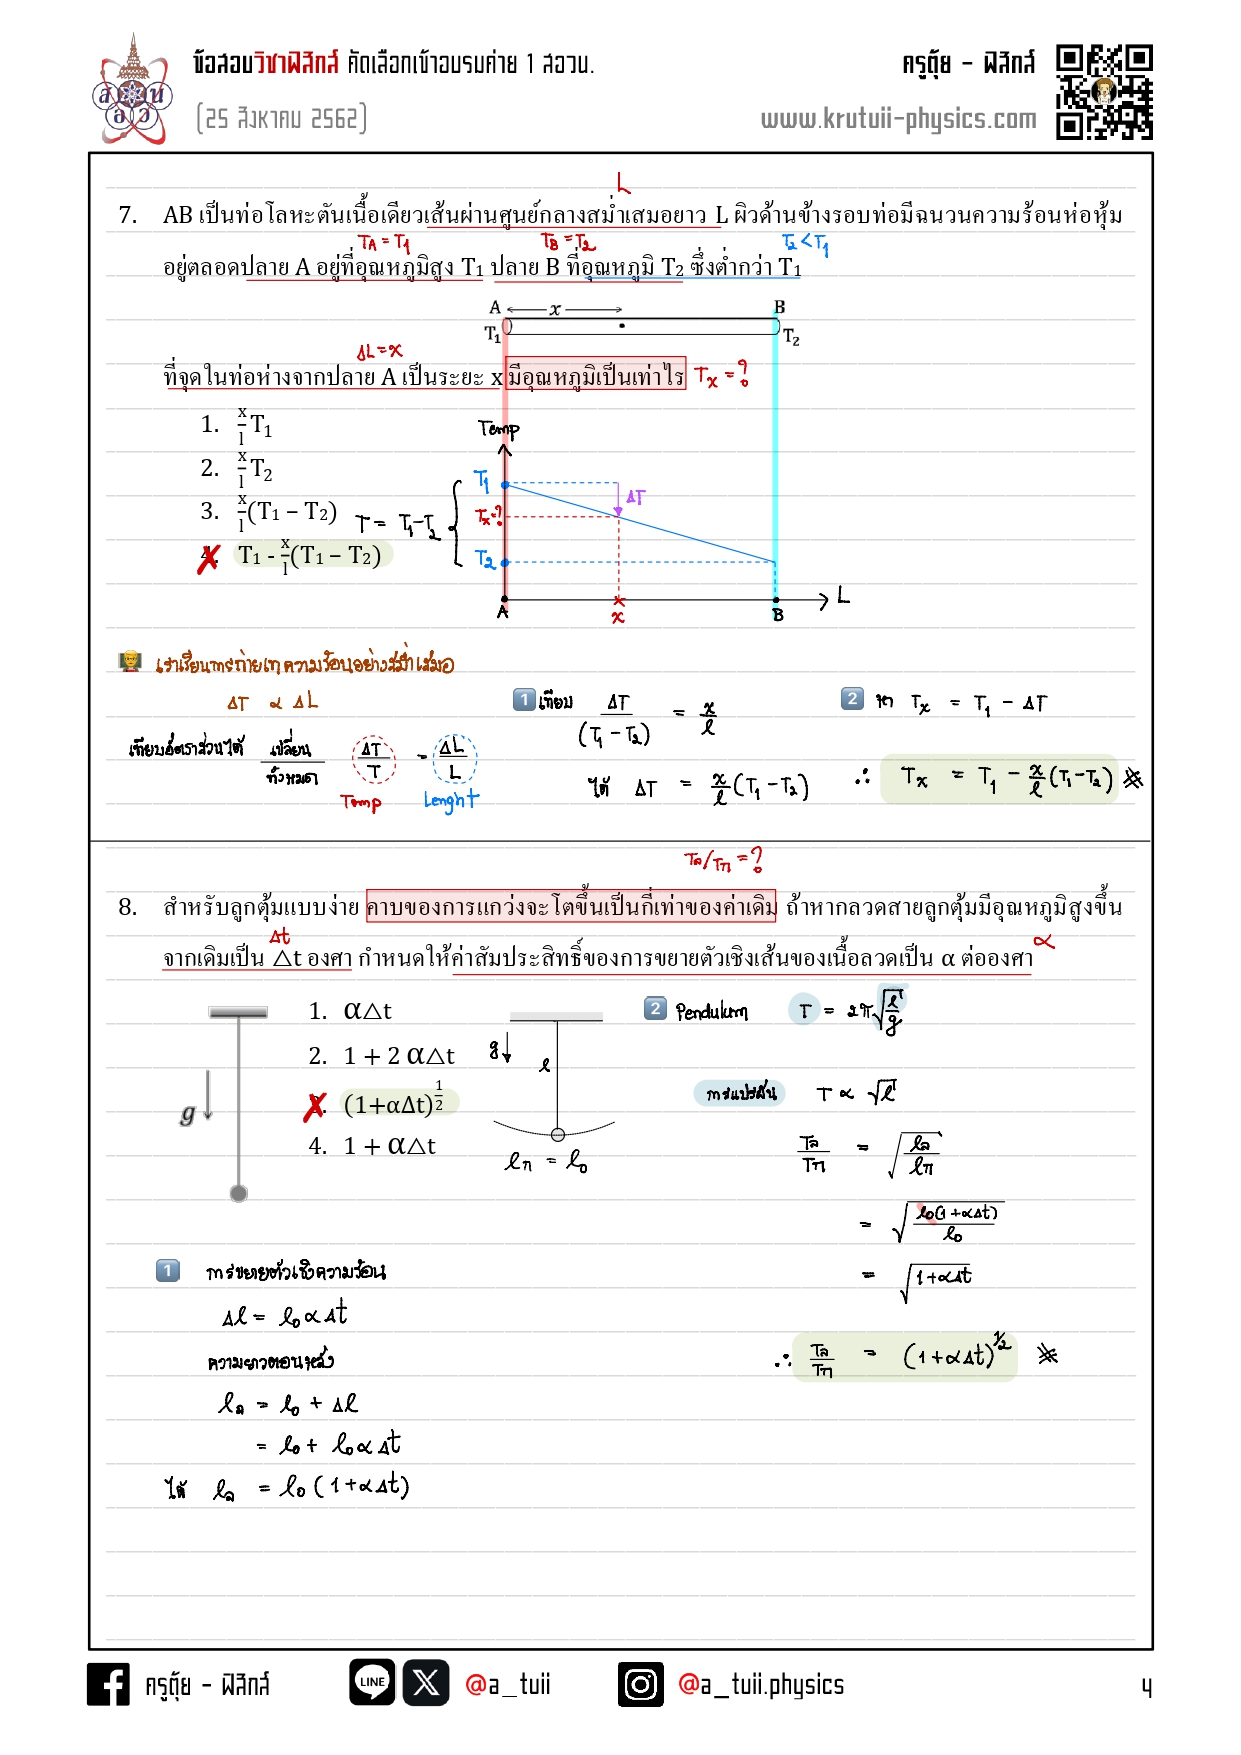 ข้อสอบวิชาฟิสิกส์ คัดเลือกเข้าอบรมค่าย 1 สอวน.
(25 สิงหาคม 2562)
ครูตุ้ย - ฟิสิกส์
www.krutuii-physics.com
L
7. AB เป็นท่อโลหะตันเนื้อเดียวเส้นผ่านศูนย์กลางสม่ำเสมอยาว L ผิวด้านข้างรอบท่อมีฉนวนความร้อนห่อหุ้ม
T_A = T₁ T_B = T₂ T₂ < T₁
อยู่ตลอดปลาย A อยู่ที่อุณหภูมิสูง T₁ ปลาย B ที่อุณหภูมิ T₂ ซึ่งต่ำกว่า T₁
A x B
T₁ T₂
ΔL = x
ที่จุดในท่อห่างจากปลาย A เป็นระยะ x มีอุณหภูมิเป็นเท่าไร Tx = ?
1. x/l T₁
2. x/l T₂
3. x/l (T₁ – T₂)
4. T₁ - x/l (T₁ – T₂)
T = T₁-T₂
Temp
T₁
ΔT
Tx=?
T₂
A x B L
เราเรียนการถ่ายเทความร้อนอย่างสม่ำเสมอ
ΔT ∝ ΔL
เทียบอัตราส่วนได้ เปลี่ยน/ทั้งหมด ΔT/T = ΔL/L
Temp Lenght
1 เทียบ ΔT/(T₁-T₂) = x/l
ได้ ΔT = x/l (T₁-T₂)
2 หา Tx = T₁ - ΔT
∴ Tx = T₁ - x/l (T₁-T₂)
Tล/Tก = ?
8. สำหรับลูกตุ้มแบบง่าย คาบของการแกว่งจะโตขึ้นเป็นกี่เท่าของค่าเดิม ถ้าหากลวดสายลูกตุ้มมีอุณหภูมิสูงขึ้น
Δt α
จากเดิมเป็น △t องศา กำหนดให้ค่าสัมประสิทธิ์ของการขยายตัวเชิงเส้นของเนื้อลวดเป็น α ต่อองศา
g
1. α△t
2. 1 + 2 α△t
3. (1+αΔt)^½
4. 1 + α△t
g l
lก = l₀
2 Pendulum T = 2π√(l/g)
การแปรผัน T ∝ √l
Tล/Tก = √(lล/lก)
= √(l₀(1+αΔt)/l₀)
= √(1+αΔt)
∴ Tล/Tก = (1+αΔt)^½
1 การขยายตัวเชิงความร้อน
Δl = l₀αΔt
ความยาวตอนหลัง
lล = l₀ + Δl
= l₀ + l₀αΔt
ได้ lล = l₀(1+αΔt)
ครูตุ้ย - ฟิสิกส์
LINE
@a_tuii
@a_tuii.physics
4